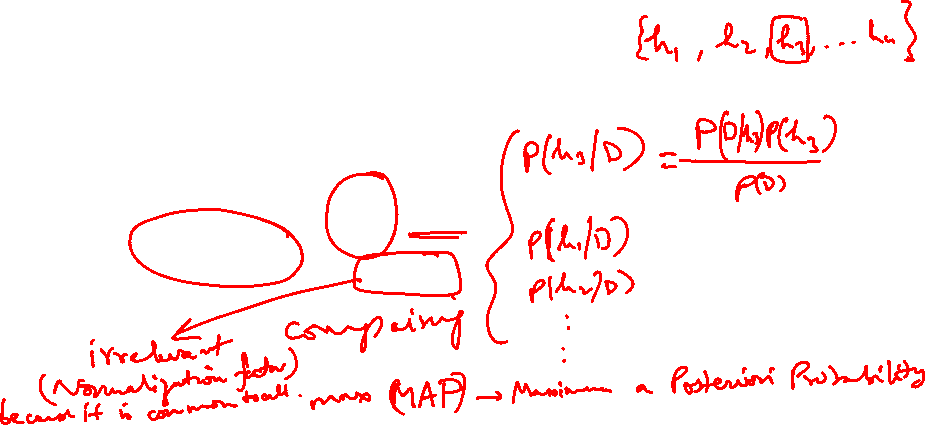 {h1, h2, h3, ... hn}
P(h3/D) = P(D/h3)P(h3)
P(D)
P(h1/D)
P(h2/D)
⋮
comparing
irrelevant
(Normalization factor)
because it is common to all.
max (MAP) → Maximum a Posteriori Probability